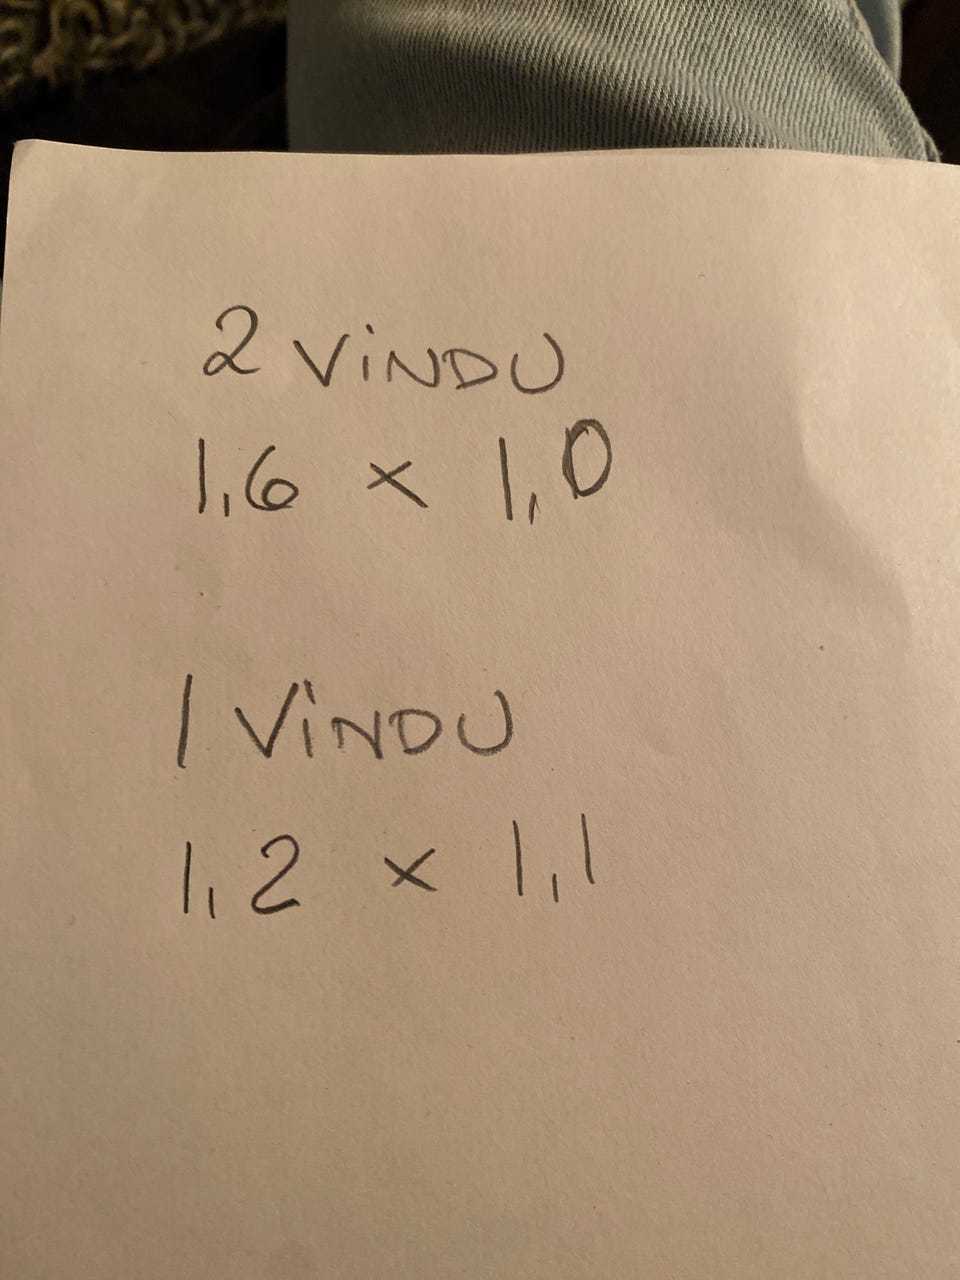 2 ViNDU
1,6 x 1,0
1 ViNDU
1,2 x 1,1